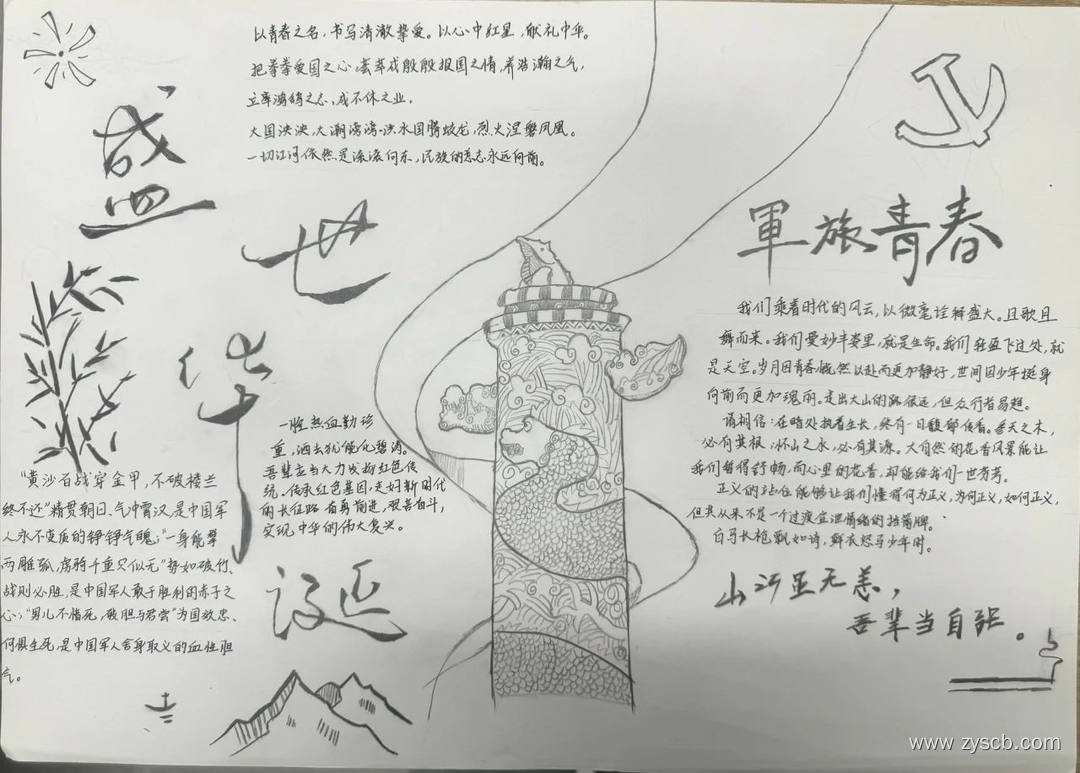 以青春之名，书写清澈挚爱。以心中红星，献礼中华。
把拳拳爱国之心，荟萃成殷殷报国之情，养浩瀚之气，
立鸿鹄之志，成不休之业。
大国泱泱，大潮滂滂，洪水困蛟龙，烈火涅槃凤凰。
一切江河依然是滚滚向东，民族的意志永远向前。
盛世华诞
軍旅青春
我们乘着时代的风云，以微毫诠释盛大。且歌且
舞而来。我们曼妙丰姿里，就是生命。我们轻盈飞过处，就
是天空。岁月因青春慨然以赴而更加静好，世间因少年挺身
向前而更加瑰丽。走出大山的路很远，但众行者易趋。
请相信：在暗处执着生长，终有一日馥郁传香。参天之木，
必有其根；怀山之水，必有其源。大自然的花香风景能让
我们暂得舒畅，而心里的花香，却能给我们一世芳芳。
正义的站位能够让我们懂得何为正义，为何正义，如何正义，
但其从来不是一个过渡宣泄情绪的挡箭牌。
白马长枪飘如诗，鲜衣怒马少年时。
山河亚无恙，
吾辈当自强。
一腔热血勤珍
重，洒去犹能化碧涛。
吾辈应当大力发扬红色传
统。传承红色基因，走好新时代
的长征路 奋勇前进，艰苦奋斗，
实现中华的伟大复兴。
"黄沙百战穿金甲，不破楼兰
终不还"精贯朝日、气冲霄汉，是中国军
人永不变质的铮铮气魄；"一身能擘
两雕弧，虏骑千重只似无"势如破竹、
战则必胜，是中国军人敢于胜利的赤子之
心；"男儿不惜死，破胆与君尝"为国效忠、
何惧生死，是中国军人舍身取义的血性胆
气。
www.zyscb.com